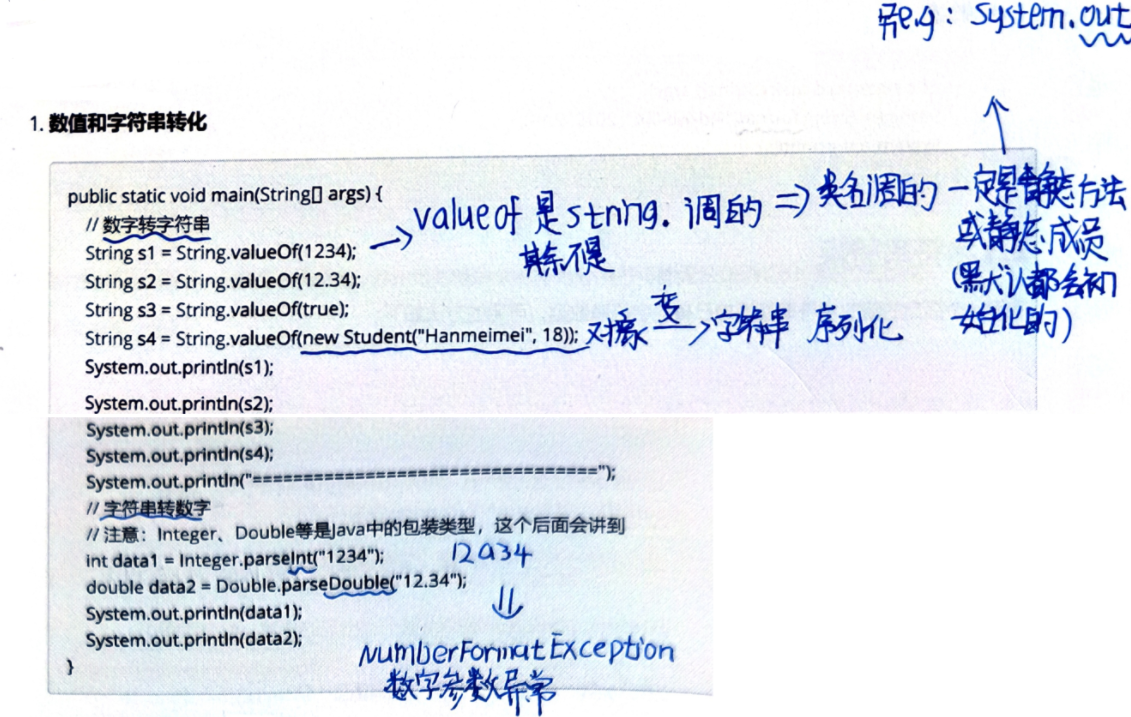 e.g: System.out
1. 数值和字符串转化
public static void main(String[] args) {
// 数字转字符串
String s1 = String.valueOf(1234);
valueof 是 string. 调的 => 类名调的 一定是静态方法
或静态成员
(默认都会初
始化的)
其余不是
String s2 = String.valueOf(12.34);
String s3 = String.valueOf(true);
String s4 = String.valueOf(new Student("Hanmeimei", 18));
对象 变 字符串 序列化
System.out.println(s1);
System.out.println(s2);
System.out.println(s3);
System.out.println(s4);
System.out.println("==================================");
// 字符串转数字
// 注意：Integer、Double等是Java中的包装类型，这个后面会讲到
int data1 = Integer.parseInt("1234");
12a34
double data2 = Double.parseDouble("12.34");
System.out.println(data1);
System.out.println(data2);
}
NumberFormatException
数字参数异常